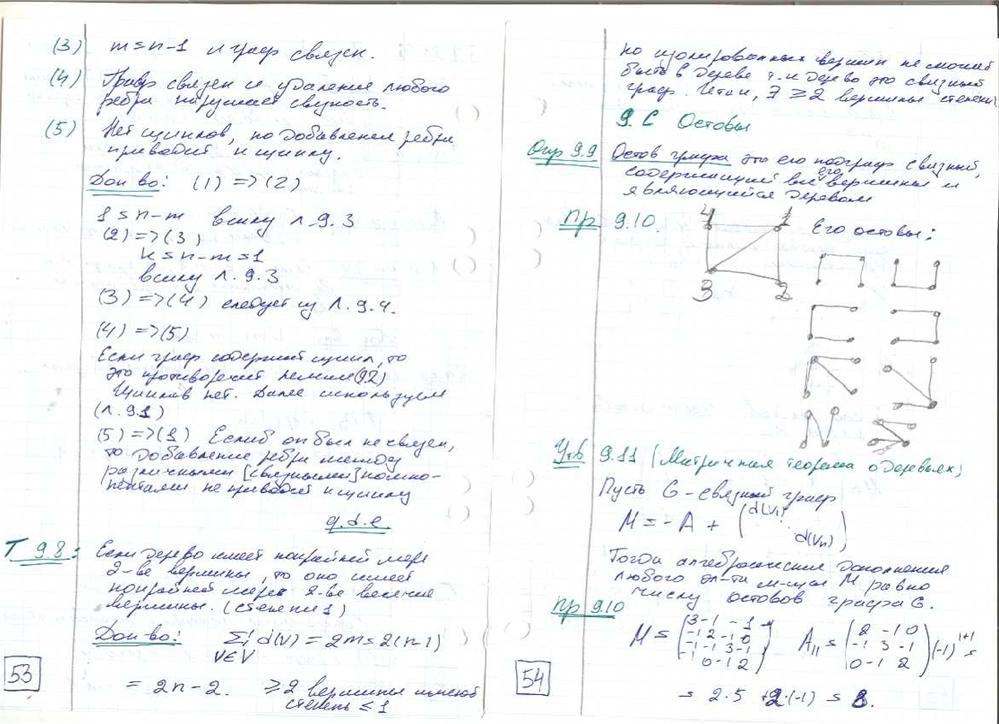 (3) m = n-1 и граф связен.
(4) Граф связен и удаление любого
ребра нарушает связность.
(5) Нет циклов, но добавление ребра
приводит к циклу.
Док-во: (1) => (2)
1 = n-m в силу л. 9.3
(2) => (3)
k = n-m = 1
в силу Л. 9.3
(3) => (4) следует из Л. 9.4.
(4) => (5)
Если граф содержит цикл, то
это противоречит лемме (9.2)
Циклов нет. Далее используем
(Л. 9.1)
(5) => (1) Если б он был не связен,
то добавление ребра между
различными [связными] компо-
нентами не приводит к циклу
q.d.e
Т 9.8: Если дерево имеет по крайней мере
2-ве вершины, то оно имеет
по крайней мере 2-ве висячие
вершины. (степени 1)
Док-во: Σ d(v) = 2m = 2(n-1)
v∈V
= 2n-2. ≥2 вершины имеют
степень ≤ 1
53
но изолированных вершин не может
быть в дереве т.к дерево это связный
граф. Итак, ∃ ≥2 вершины степени
9.С Остовы
Опр 9.9 Остов графа это его подграф связный,
содержащий все его вершины и
являющийся деревом
Пр 9.10 4 1 Его остовы:
3 2
Утв 9.11 (Матричная теорема о деревьях)
Пусть G - связный граф
M = -A + (d(v₁) ⋱ d(vₙ))
Тогда алгебраические дополнения
любого эл-та м-цы M равно
числу остовов графа G.
Пр 9.10
M = (3 -1 -1 -1 / -1 2 -1 0 / -1 -1 3 -1 / -1 0 -1 2) A₁₁ = (2 -1 0 / -1 3 -1 / 0 -1 2) (-1)¹⁺¹ =
= 2·5 + 2·(-1) = 8.
54